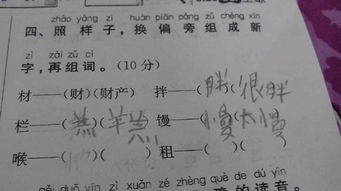 zhào yàng zi huàn piān páng zǔ chéng xīn
四、照样子，换偏旁组成新
zì zài zǔ cí
字，再组词。（10 分）
材——（财）（财产） 拌——（胖）（很胖
栏——（ ）（羊羔 馒——（慢 太慢
喉——（ ）（ ） 租——（ ）（ ）
zì xuǎn zé zhèng què de dú yīn
确 的 读 音 。